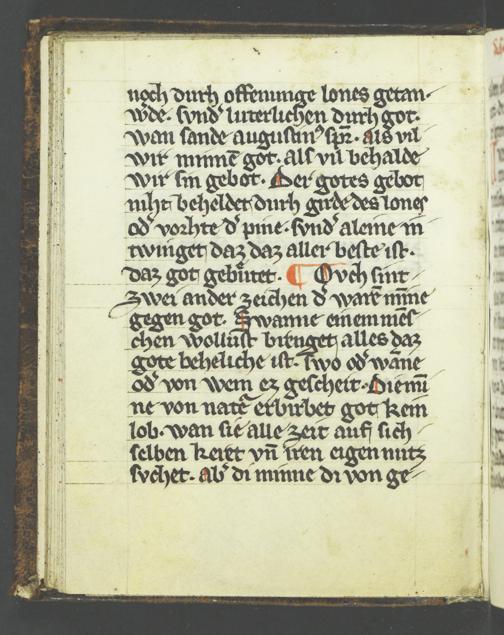 noch durh offenunge lones getan·
w̓de· sund̓ luterlichen durh got·
wan sande augustin̓ sp̄r̄· als vil
wir minnē got· als vil behalde
wir sin gebot· Der gotes gebot
niht beheldet durh girde des lones
od̓ vorhte d̓ pine· sund̓ aleine in
twinget daz daz aller beste ist·
daz got gebůtet· ¶ Ouch sint
zwei ander zeichen d̓ warē mīne
gegen got· Swanne einem mēs
chen wollust brenget alles daz
gote beheliche ist· swo od̓ wāne
od̓ von wem ez gescheit· Die mī
ne von nat̄e erbirbet got kein
lob· wan sie alle zeit auf sich
selben keret vn̄ iren eigen nutz
suchet· ab̓ di minne di von ge